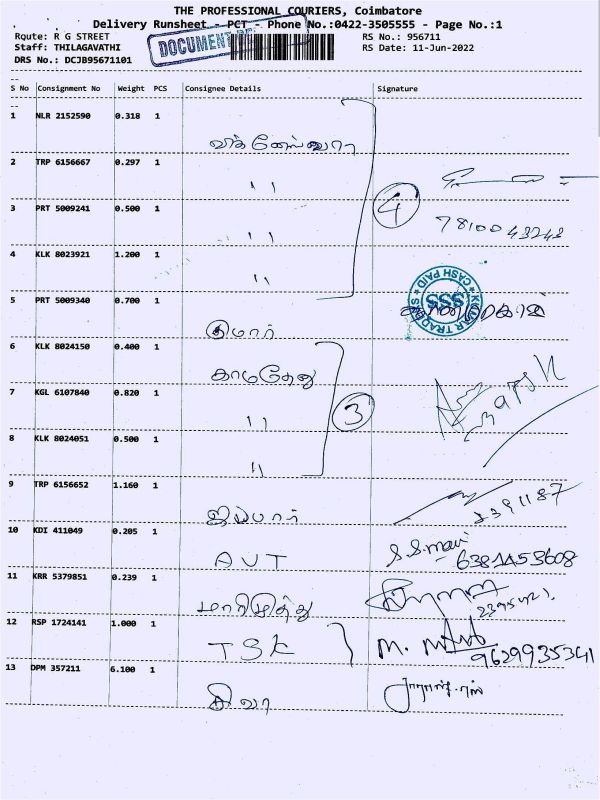 THE PROFESSIONAL COURIERS, Coimbatore
Delivery Runsheet - PCT - Phone No.:0422-3505555 - Page No.:1
Rqute: R G STREET
RS No.: 956711
Staff: THILAGAVATHI
RS Date: 11-Jun-2022
DRS No.: DCJB95671101
DOCUMENT
S No Consignment No Weight PCS Consignee Details Signature
1 NLR 2152590 0.318 1
விக்னேஸ்வரா
2 TRP 6156667 0.297 1
" 
3 PRT 5009241 0.500 1
" 4 7810043243
4 KLK 8023921 1.200 1
"
SSS CASH PAID
5 PRT 5009340 0.700 1
குமார்
6 KLK 8024150 0.400 1
காமதேனு
7 KGL 6107840 0.820 1
" 3
8 KLK 8024051 0.500 1
"
9 TRP 6156652 1.160 1
10 KDI 411049 0.205 1
AVT 6381453608
11 KRR 5379851 0.239 1
மாரிமுத்து
12 RSP 1724141 1.000 1
TSK 9629935341
13 DPM 357211 6.100 1
சிவா